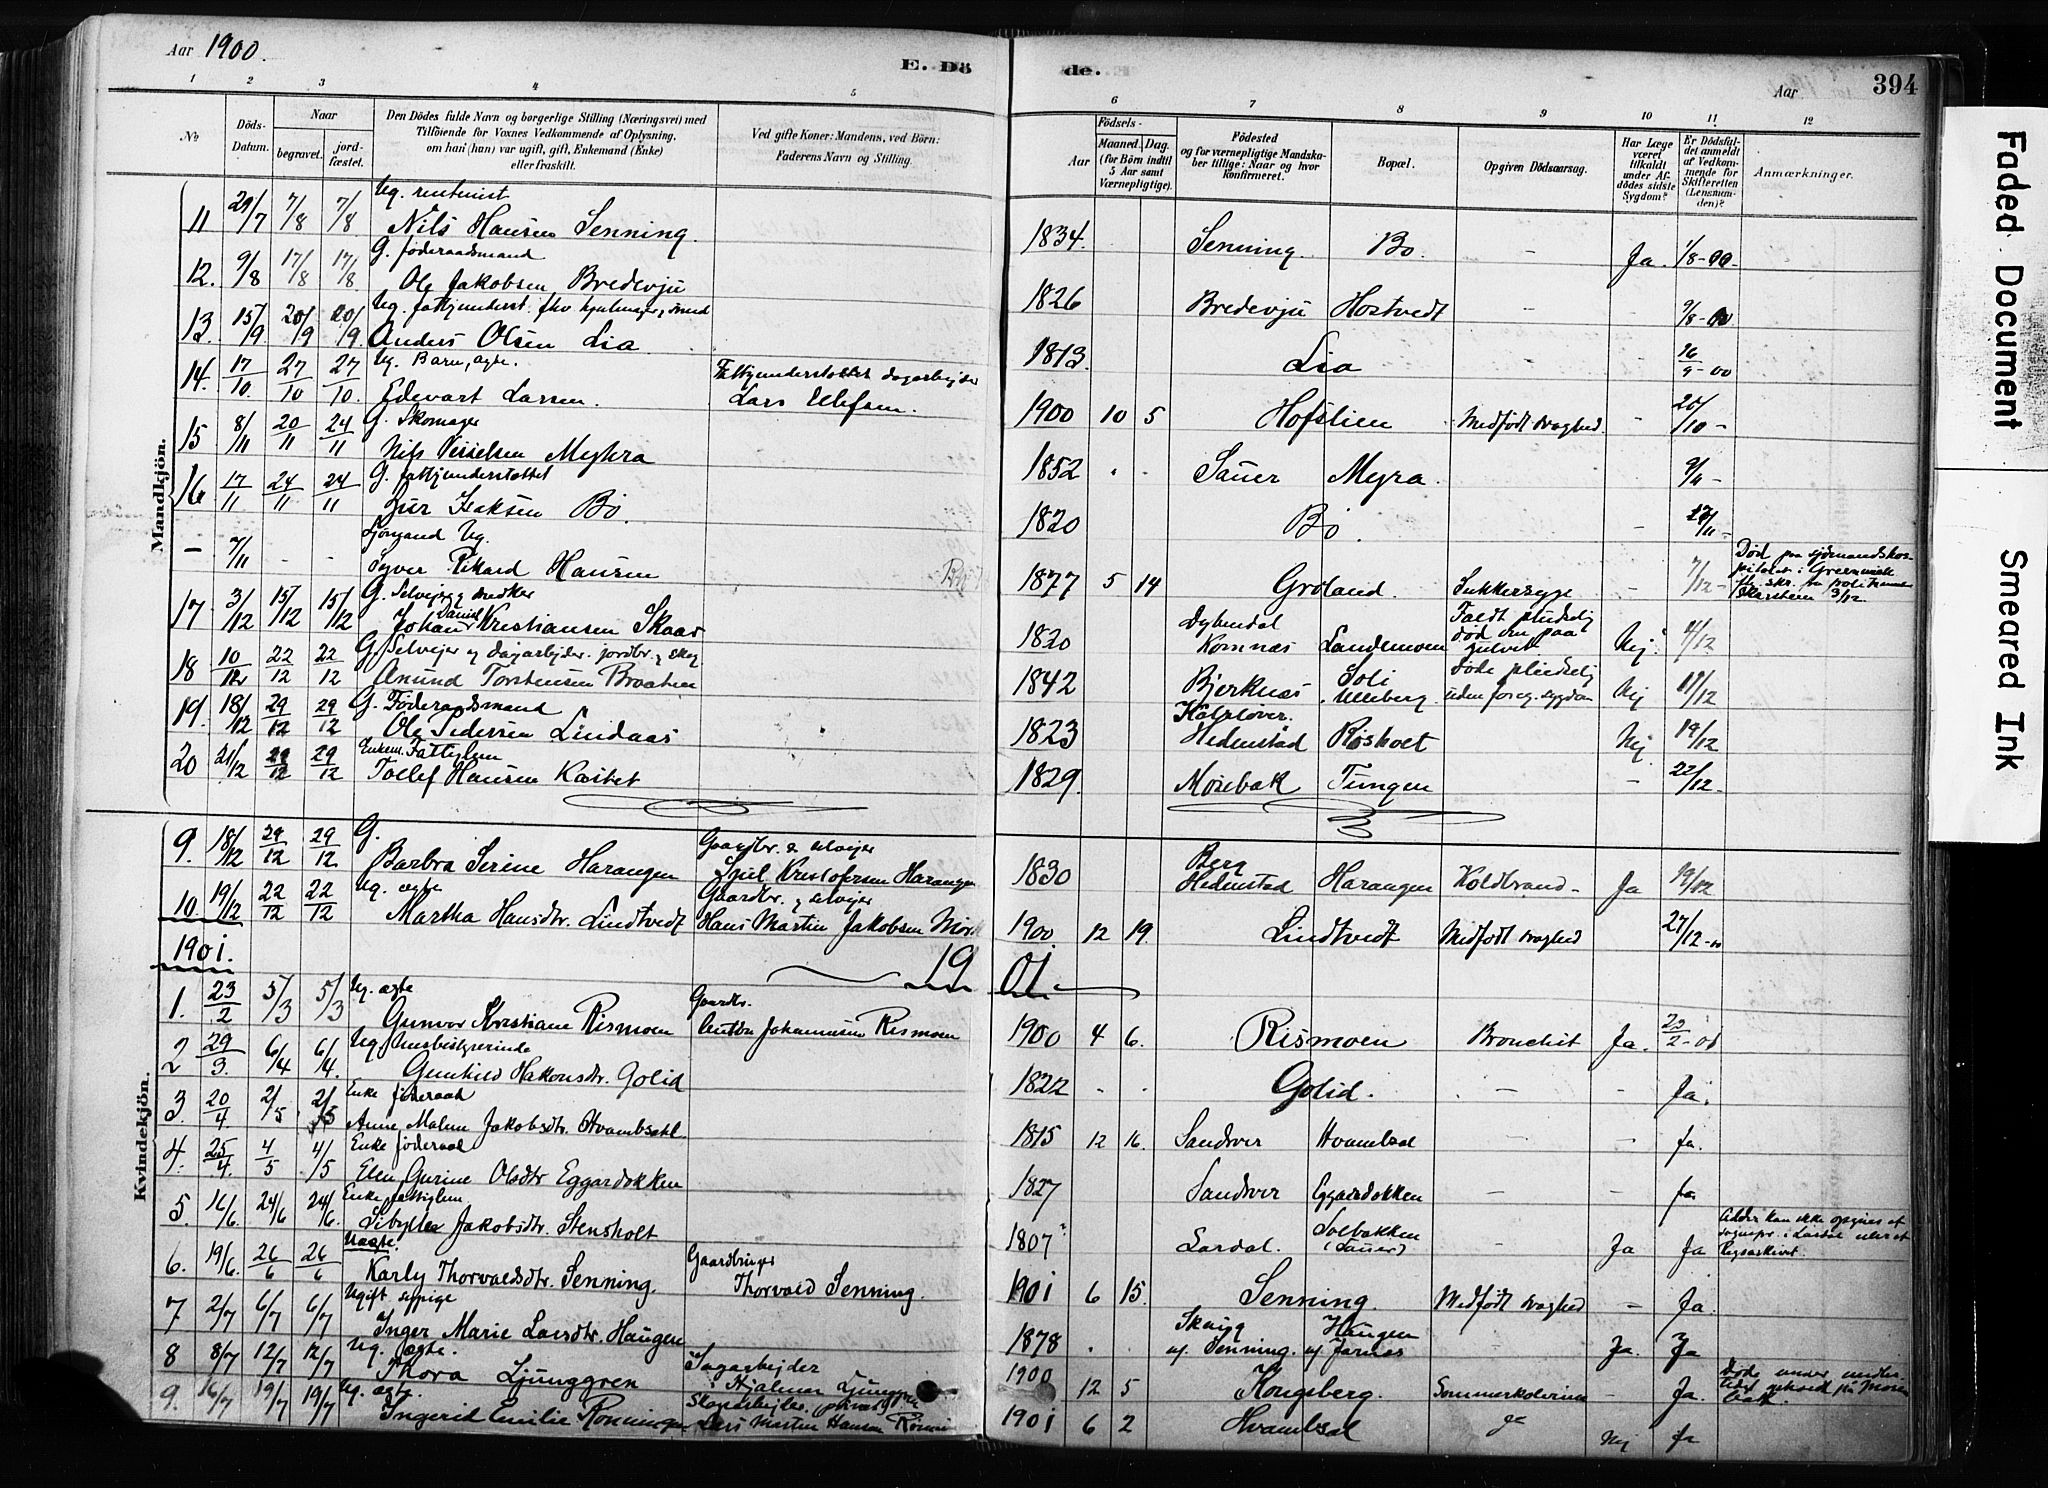 Aar 1900.
E. Dö de.
Aar 394
1 2 3 4 5 6 7 8 9 10 11 12
No
Döds-Datum.
Naar
begravet.
jord-fæstet.
Den Dödes fulde Navn og borgerlige Stilling (Næringsvei) med
Tilföiende for Voxnes Vedkommende af Oplysning,
om han (hun) var ugift, gift, Enkemand (Enke)
eller fraskilt.
Ved gifte Koner: Mandens, ved Börn:
Faderens Navn og Stilling.
Födsels-
Aar
Maaned. Dag.
(for Börn indtil
5 Aar samt
Værnepligtige).
Födested
og for værnepligtige Mandska-
ber tillige: Naar og hvor
konfirmeret.
Bopæl.
Opgiven Dödsaarsag.
Har Læge
været
tilkaldt
under Af-
dödes sidste
Sygdom?
Er Dödsfal-
det anmeldt
af Vedkom-
mende for
Skifteretten
(Lensman-
den)?
Anmærkninger.
Mandkjön.
11 29/7 7/8 7/8 Ug. rentenist
Nils Hansen Senning. 1834. Senning. Bo. - Ja. 1/8-00.
12. 9/8 17/8 17/8 G. føderaadsmand
Ole Jakobsen Bredevju 1826 Bredevju Hostvedt - 9/8-00
13 15/9 20/9 20/9 Ug. fattigunderst. fhv hjulmager, smed
Anders Olsen Lia 1813. Lia - 16/9-00
14. 17/10 27/10 27/10 Ug. Barn, ægte.
Edevart Larsen. Fattigunderstøttet dagarbejder
Lars Ellefsen. 1900 10 5 Hofslien Medfødt svaghed. - 20/10 -
15 8/11 20/11 24/11 G. Skomager
Nils Nisselsen Myhra 1852 Sauer Myra. 9/11-
16 17/11 24/11 24/11 G. fattigunderstøttet
Gur Isaksen Bö. 1820 Bö. - 17/11-
- 7/11 - - Sjømand Ug.
Syver Rikard Hansen 1877 5 14 Groland. Sukkersyge - 7/12- Død paa sjømandshos-
pitalet i Greenwich
17 3/12 15/12 15/12 G. Selvejer, smedker
Johan Daniel Kristiansen Skaar 1820 Dybendal
Komnæs Landemoen Faldt pludselig
død om paa
gulvet Nej. 4/12
18 10/12 22/12 22/12 G. Selvejer og dagarbejder. jordbr. & skog
Anund Torstensen Braaten 1842 Bjerknæs Soli
Ulleberg Døde pludselig
uden foreg. sygdom Nej 11/12
19. 18/12 29/12 29/12 G. Føderaadsmand
Ole Pedersen Lindaas 1823 Hedenstad Røsholt Nej 19/12
20 21/12 29/12 29/12 Enkem. Fattiglem
Tollef Hansen Kastet 1829. Mosebæk Tungen - 22/12
Kvindekjön.
9. 18/12 29/12 29/12 G.
Barbra Serine Harangen Gaardbr. & selvejer
Kristofersen Harangen 1830 Berg
Hedenstad Harangen Koldbrand- Ja 19/12
10. 19/12 22/12 22/12 Ug. ægte
Martha Hansdtr. Lindtvedt Gaardbr. & selvejer
Hans Martin Jakobsen 1900 12 19. Lindtvedt Medfødt svaghed 27/12-00
1901. 1901.
1. 23/2 5/3 5/3 Ug. ægte
Gunvor Kristiane Rismoen Gaardbr.
Anton Johannesen Rismoen 1900 4 6. Rismoen Bronchit Ja. 23/2-01
2 29/3. 6/4 6/4. Ug. husbestyrerinde
Gunhild Hakonsdtr. Golid 1822 - - Golid. - - Ja.
3. 20/4. 2/5 2/5 Enke føderaad
Anne Malene Jakobsdtr. Hvambsahl. 1815 12 16. Sandsver Hvambsal - - Ja.
4. 25/4. 4/5 4/5 Enke føderaad
Elen Gurine Olsdtr Eggardokken 1827 Sandsver Eggardokken - - Ja
5. 16/6. 24/6 24/6. Enke fattiglem
Sibylle Jakobsdtr. Stensholt 1807? Lardal. Solbakken
(Sauer) - Ja Ja Alder kan ikke opgives af
sognepr. i Lardal eller af
Rigsarkivet.
6. 19/6. 26/6 26/6 Uægte.
Karly Thorvaldsdtr. Senning. Gaardbruger
Thorvald Senning. 1901 6 15. Senning. Medfødt svaghed - Ja.
7 2/7 6/7 6/7 Ugift sypige
Inger Marie Larsdtr. Haugen 1878 Skrigg
u/ Senning. Haugen
u/ Jarnæs Ja. Ja
8 8/7 12/7 12/7 Ug. ægte.
Thora Ljunggren Sagarbejder
Hjalmar Ljunggren 1900 12 5 Kongsberg. Sommerkolerine - Ja. Døde under midler-
tidigt ophold paa Mosebæk.
9. 16/7 19/7 19/7 Ug. ægte.
Ingerid Emilie Rønningen Skogarbejder,
Lars Martin Hansen 1901 6 2 Hvambsal Nej Ja
Faded Document
Smeared Ink